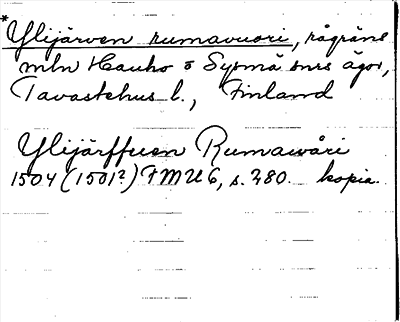 *Ylijärven rumavuori, rågräns
mln Hauho o Sysmä snrs ägor,
Tavastehus l., Finland
Ylijärffuen Rumawåri
1504 (1501?) FMU 6, s. 280. kopia.